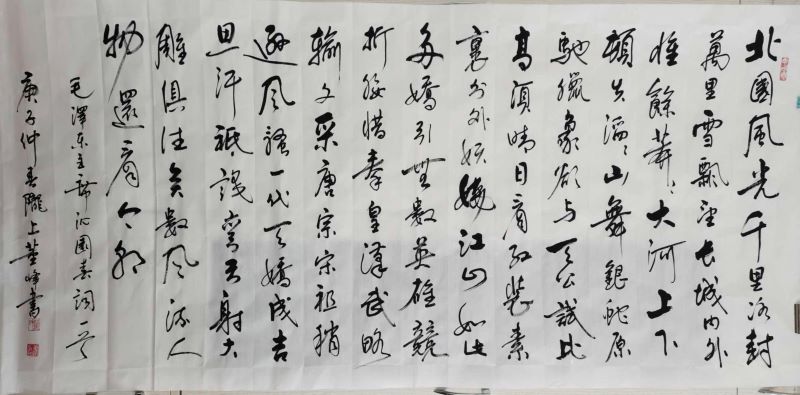 北國風光千里冰封
萬里雪飄望長城內外
惟餘莽々大河上下
頓失滔々山舞銀蛇原
馳蠟象欲与天公試比
高須晴日看紅裝素
裹分外妖嬈江山如此
多嬌引無數英雄競
折腰惜秦皇漢武略
輸文采唐宗宋祖稍
遜風騷一代天嬌成吉
思汗祇識彎弓射大
雕俱往矣數風流人
物還看今朝
毛澤东主席沁園春詞一首
庚子仲春隴上董峰書